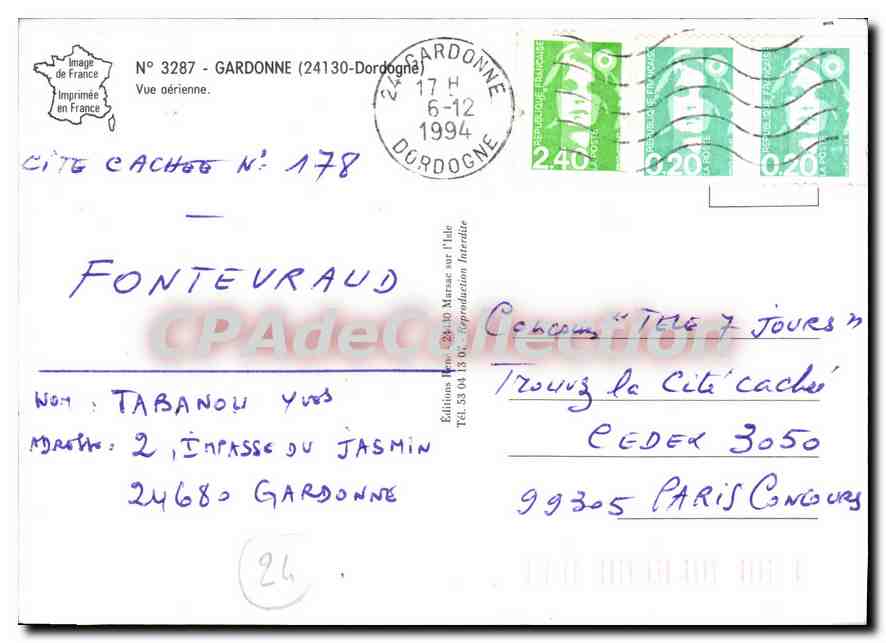 Image
de France
Imprimée
en France
N° 3287 - GARDONNE (24130-Dordogne)
Vue aérienne.
24 GARDONNE
17 H
6-12
1994
DORDOGNE
RÉPUBLIQUE FRANÇAISE
2.40
LA POSTE
RÉPUBLIQUE FRANÇAISE
0,20
LA POSTE
RÉPUBLIQUE FRANÇAISE
0,20
LA POSTE
CITE CACHEE N° 178
FONTEVRAUD
NOM : TABANOU Yves
ADRESSE : 2, IMPASSE DU JASMIN
24680 GARDONNE
24
Éditions René - 24430 Marsac sur l'Isle
Tél. 53 04 13 07. Reproduction Interdite
Concours "TELE 7 JOURS"
Trouvez la Cité cachée
CEDEX 3050
99305 PARIS CONCOURS
CPAdeCollection